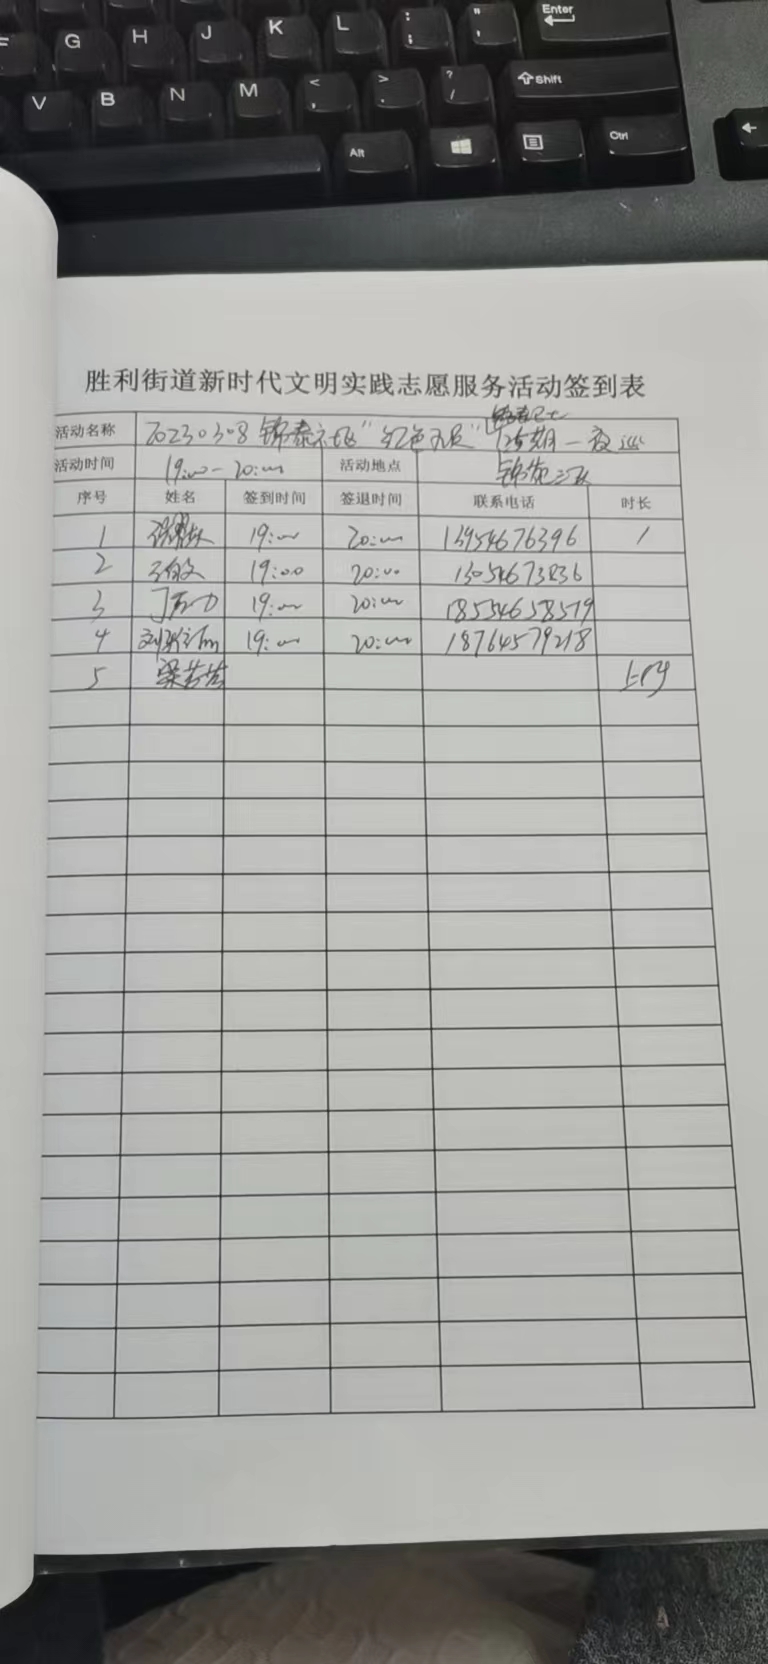 Enter
F G H J K L : ; " '
Shift
V B N M < , > . ? /
Alt Ctrl
胜利街道新时代文明实践志愿服务活动签到表
活动名称 20230308 锦泰社区“红色
期一夜巡
活动时间 19:00-20:00 活动地点 锦苑三区
序号 姓名 签到时间 签退时间 联系电话 时长
1 19:00 20:00 13954676396 1
2 19:00 20:00 13054673836
3 19:00 20:00 18554658579
4 19:00 20:00 18764579218
5 梁苦苦